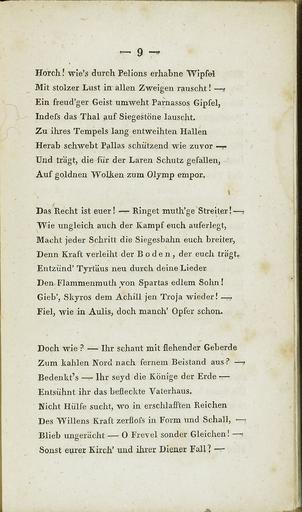 — 9 —
Horch! wie's durch Pelions erhabne Wipfel
Mit stolzer Lust in allen Zweigen rauscht! —
Ein freud'ger Geist umweht Parnassos Gipfel,
Indeſs das Thal auf Siegestöne lauscht.
Zu ihres Tempels lang entweihten Hallen
Herab schwebt Pallas schützend wie zuvor —
Und trägt, die für der Laren Schutz gefallen,
Auf goldnen Wolken zum Olymp empor.
Das Recht ist euer! — Ringet muth'ge Streiter! —
Wie ungleich auch der Kampf euch auferlegt,
Macht jeder Schritt die Siegesbahn euch breiter,
Denn Kraft verleiht der Boden, der euch trägt.
Entzünd' Tyrtäus neu durch deine Lieder
Den Flammenmuth von Spartas edlem Sohn!
Gieb', Skyros dem Achill jen Troja wieder! —
Fiel, wie in Aulis, doch manch' Opfer schon.
Doch wie? — Ihr schaut mit flehender Geberde
Zum kahlen Nord nach fernem Beistand aus? —
Bedenkt's — Ihr seyd die Könige der Erde —
Entsühnt ihr das befleckte Vaterhaus.
Nicht Hülfe sucht, wo in erschlafften Reichen
Des Willens Kraft zerfloſs in Form und Schall, —
Blieb ungerächt — O Frevel sonder Gleichen! —
Sonst eurer Kirch' und ihrer Diener Fall? —